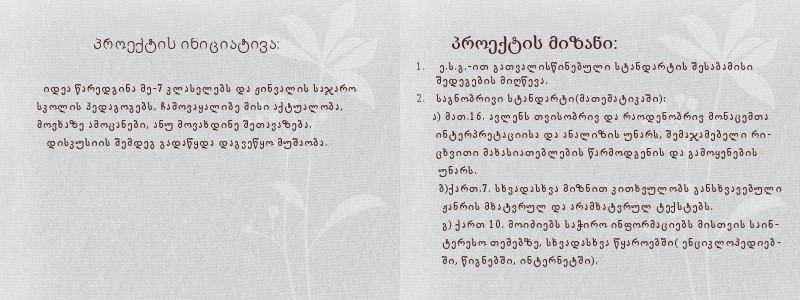 პროექტის ინიციატივა:
იდეა წარედგინა მე-7 კლასელებს და ჟინვალის საჯარო
სკოლის პედაგოგებს, ჩამოვაყალიბე მისი აქტუალობა,
მოვხაზე ამოცანები, ანუ მოვახდინე შეთავაზება.
დისკუსიის შემდეგ გადაწყდა დაგვეწყო მუშაობა.
პროექტის მიზანი:
1. ე.ს.გ.-ით გათვალისწინებული სტანდარტის შესაბამისი
შედეგების მიღწევა.
2. საგნობრივი სტანდარტი(მათემატიკაში):
ა) მათ.16. ავლენს თვისობრივ და რაოდენობრივ მონაცემთა
ინტერპრეტაციისა და ანალიზის უნარს, შემაჯამებელი რი-
ცხვითი მახასიათებლების წარმოდგენის და გამოყენების
უნარს.
ბ)ქართ.7. სხვადასხვა მიზნით კითხულობს განსხვავებული
ჟანრის მხატვრულ და არამხატვრულ ტექსტებს.
გ) ქართ 10. მოიძიებს საჭირო ინფორმაციებს მისთვის საინ-
ტერესო თემებზე, სხვადასხვა წყაროებში( ენციკლოპედიებ-
ში, წიგნებში, ინტერნეტში).